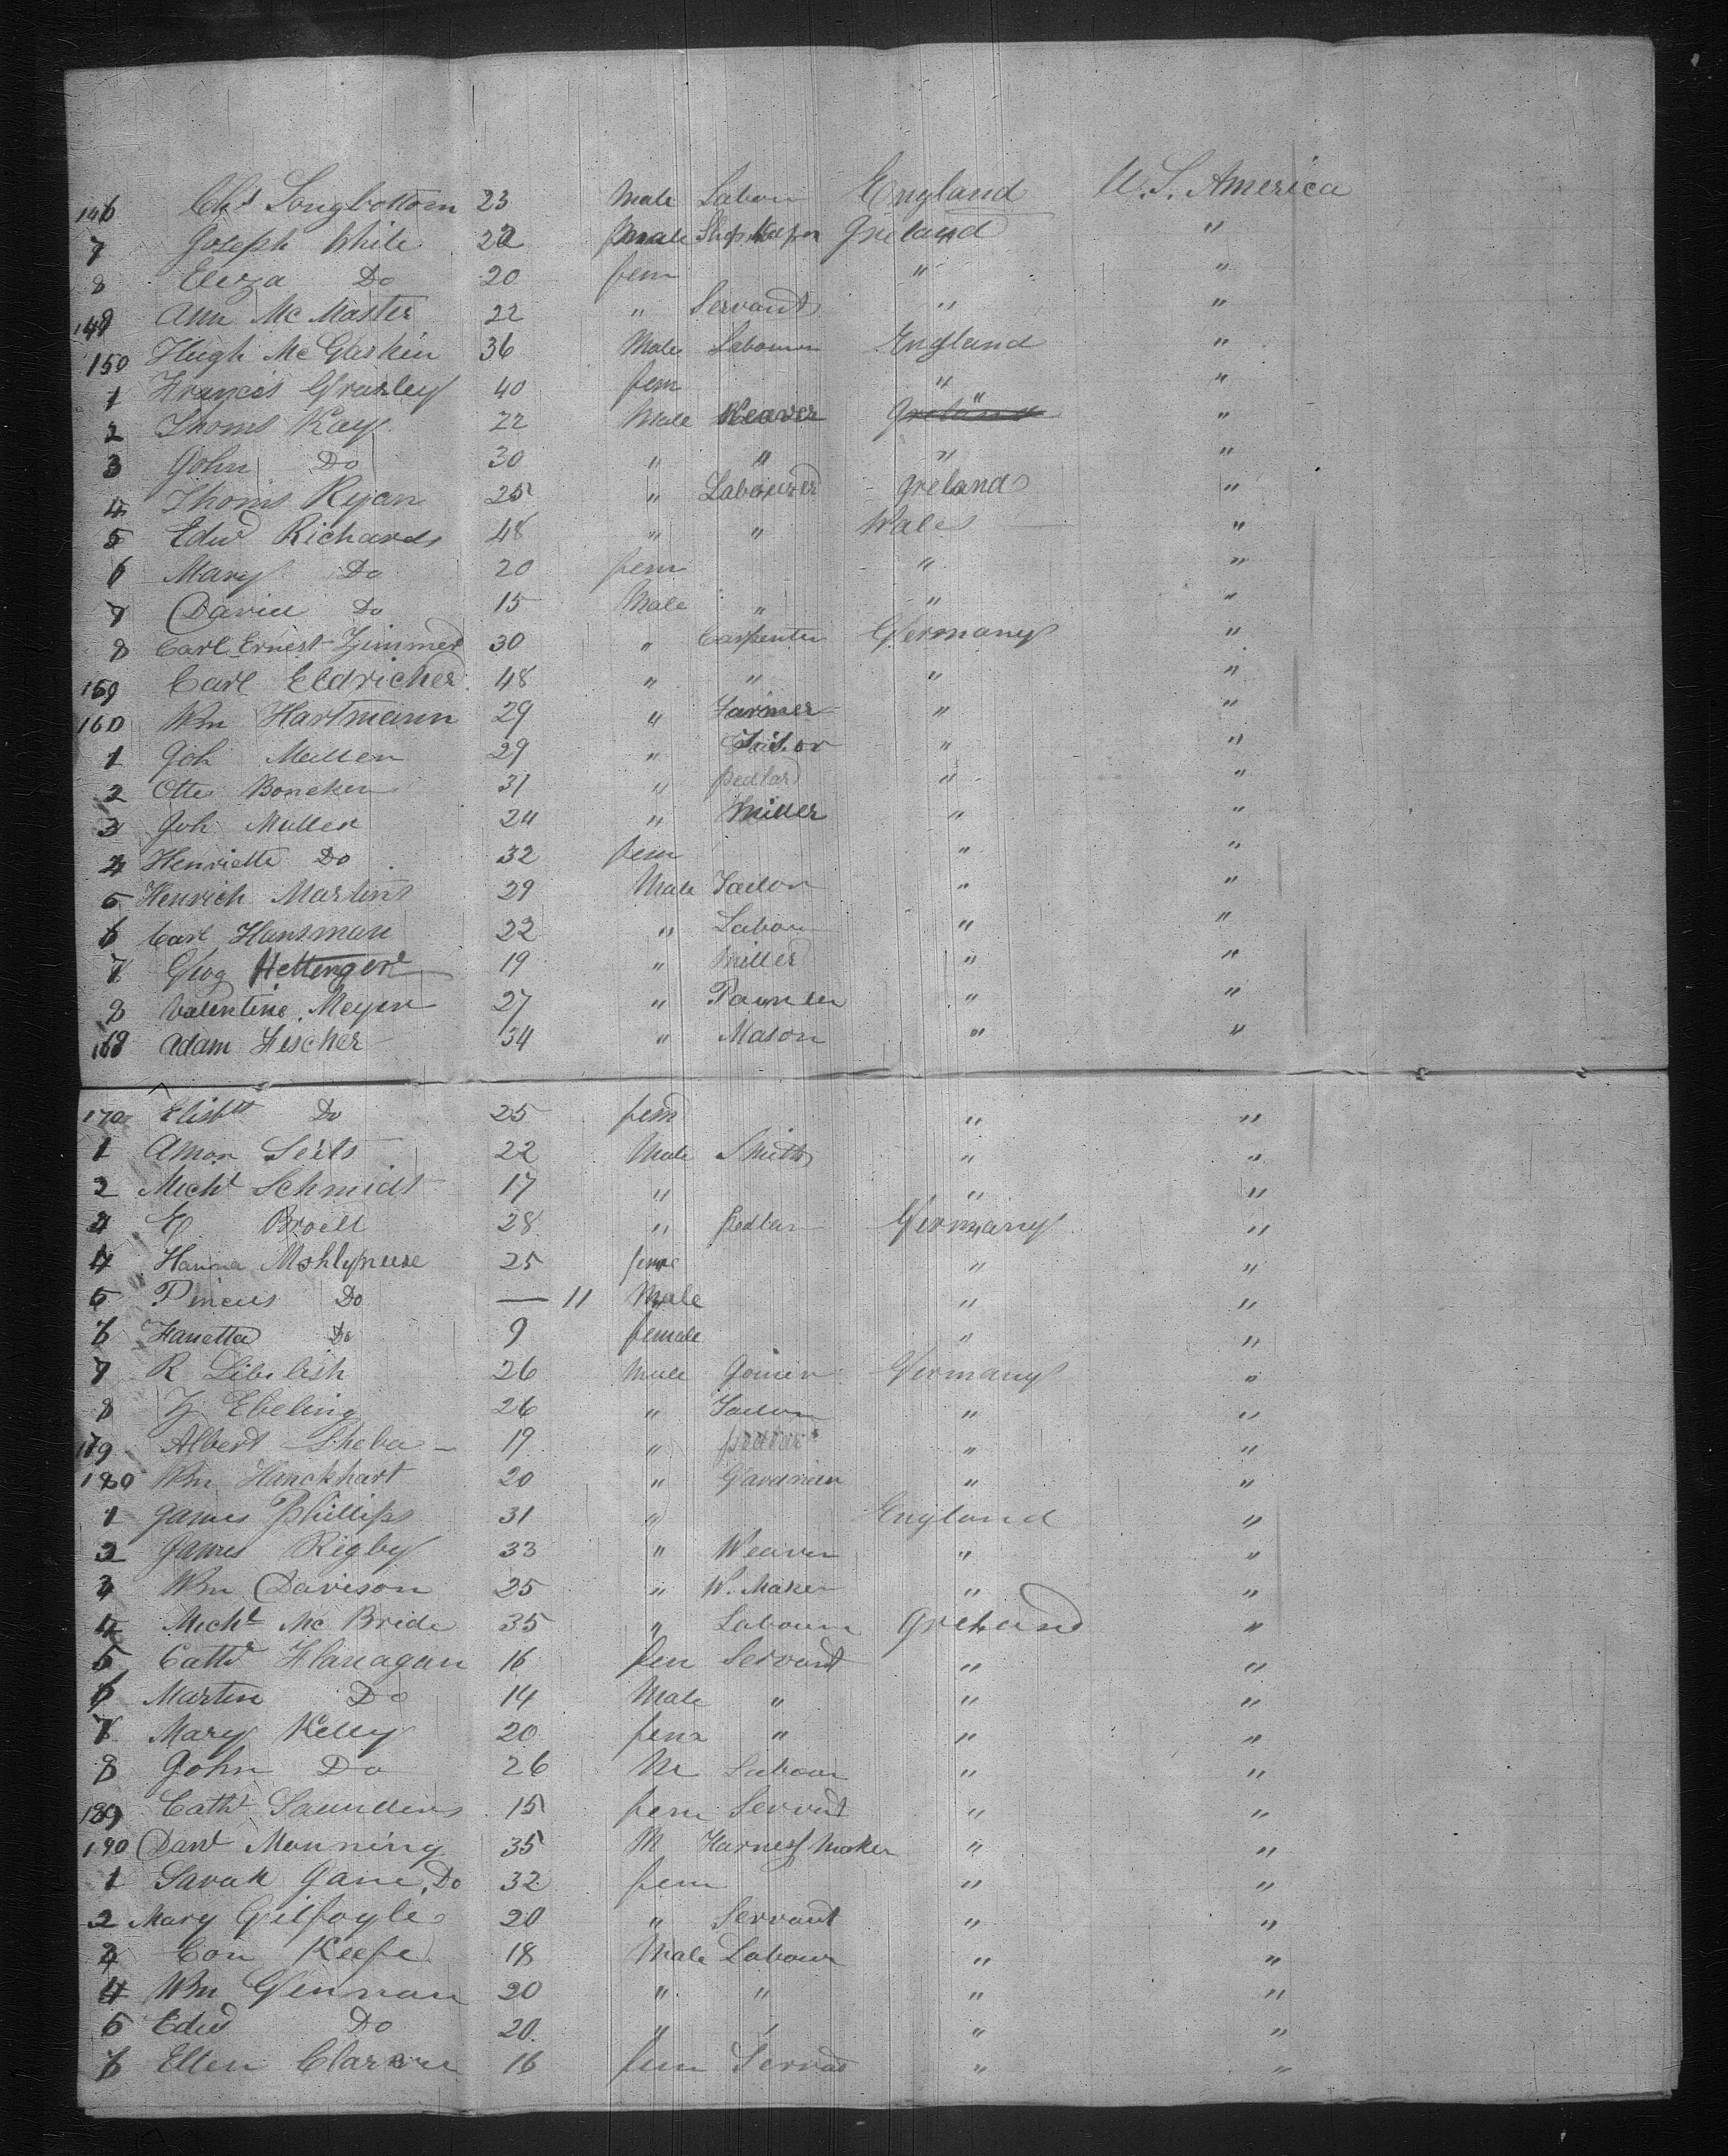 146 Chs Longbottom 23 Male Labour England U.S. America
7 Joseph White 22 Male Shop Keeper Ireland "
8 Eliza Do 20 fem " "
149 Ann Mc Master 22 " Servant " "
150 Hugh Mc Gluskin 36 Male Labourer England "
1 Francis Grasley 40 fem " "
2 Thoms Kay 22 Male Weaver " "
3 John Do 30 " " " "
4 Thoms Ryan 25 " Labourer Ireland "
5 Edwd Richards 48 " " Wales "
6 Mary Do 20 fem " "
7 David Do 15 Male " " "
8 Carl Ernest Zimmer 30 " Carpenter Germany "
159 Carl Eldricher 48 " " " "
160 Wm Hartmann 29 " Farmer " "
1 Joh Mullen 29 " Tailor " "
2 Otto Boneken 31 " pedlar " "
3 Joh Muller 24 " Miller " "
4 Henriette Do 32 fem " "
5 Henrich Martins 29 Male Tailor " "
6 Carl Hansman 22 " Labour " "
7 Geog Hettenger 19 " Miller " "
8 Valentine Meyer 27 " " "
169 Adam Fischer 34 " Mason " "
170 Elisbth Do 25 fem " "
1 Amon Seits 22 Male Smith " "
2 Michl Schmidt 17 " " "
3 Broell 28 " pedlar Germany "
4 Hanna Mohlynuse 25 feme " "
5 Pincus Do — 11 Male " "
6 Hanetta Do 9 female " "
7 R Libelish 26 Male Joiner Germany "
8 Ebeling 26 " Tailor " "
179 Albert Sheba 19 " " "
180 Wm Hanckhart 20 " Gardner " "
1 James Phillips 31 " England "
2 James Rigby 33 " Weaver " "
3 Wm Davison 25 " W. Maker " "
4 Michl Mc Bride 35 " Labourer Ireland "
5 Cathr Flanagan 16 fem Servant " "
6 Martin Do 14 Male " " "
7 Mary Kelly 20 fem " " "
8 John Do 26 M Labour " "
189 Cathr Saunders 15 fem Servant " "
190 Danl Manning 35 M Harness Maker " "
1 Sarah Jane Do 32 fem " "
2 Mary Gilfoyle 20 " Servant " "
3 Con Keefe 18 Male Labour " "
4 Wm Glennan 20 " " " "
5 Edwd Do 20 " " " "
6 Ellen 16 fem Servant " "